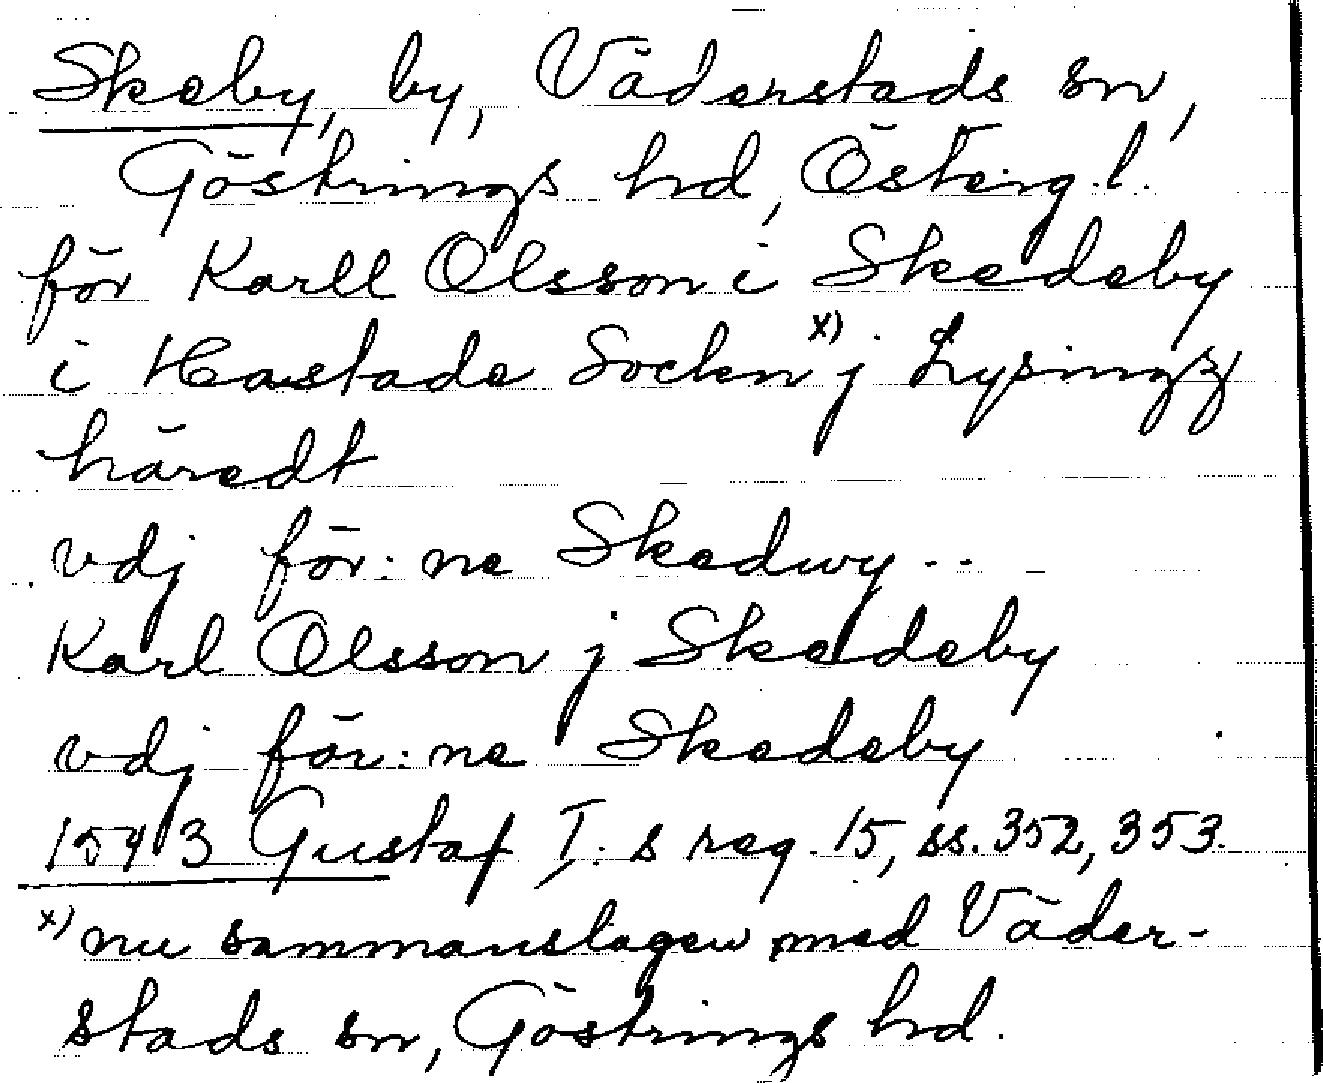 Skeby, by, Väderstads sn,
Göstrings hd, Österg.l.
för Karll Olsson i Skedeby
i Haastade Sockn x) j Lysingz
häredt
vdj för:ne Skedwy ..
Karl Olsson j Skedeby
vdj för:ne Skedeby
1543 Gustaf I:s reg. 15, ss. 352, 353.
x) nu sammanslagen med Väder-
stads sn, Göstrings hd.